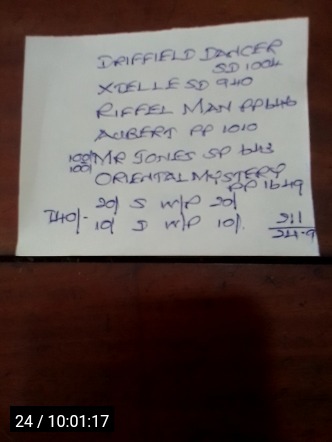 DRIFFIELD DANCER
SD 1004
XTELLE SD 940
RIFFEL MAN PP 646
AUBERT PP 1010
100/- MR JONES SP 643
100/- ORIENTAL MYSTERY
PP 1649
20/ S W/P 20/
240/- 10/ D W/P 10/.
24 / 10:01:17